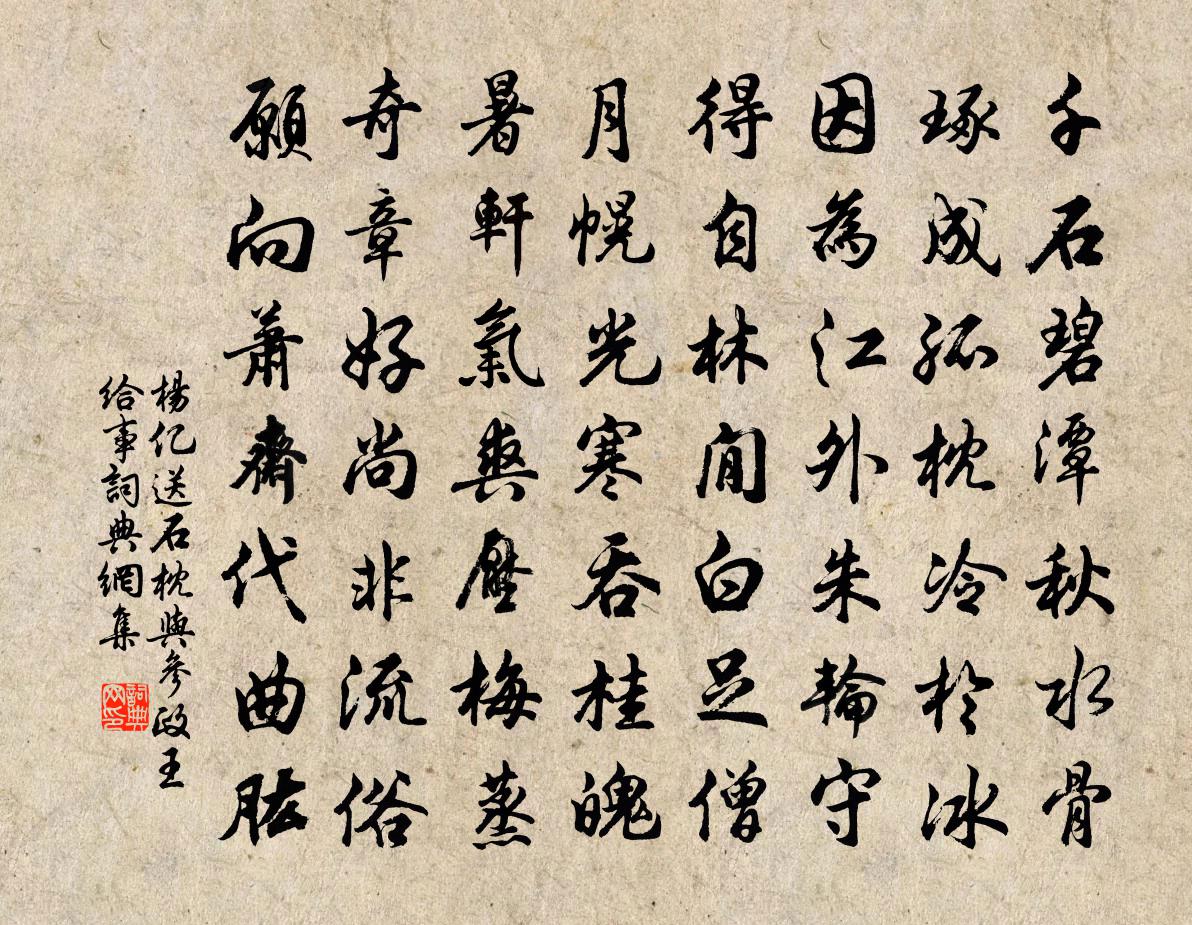 千石碧潭秋水骨
琢成孤枕冷於冰
因為江外朱輪守
得自林間白足僧
月幌光寒吞桂魄
暑軒氣爽壓梅蒸
奇章好尚非流俗
願向蕭齋代曲肱
楊億送石枕與參政王
給事詞典網集
詞典
网印